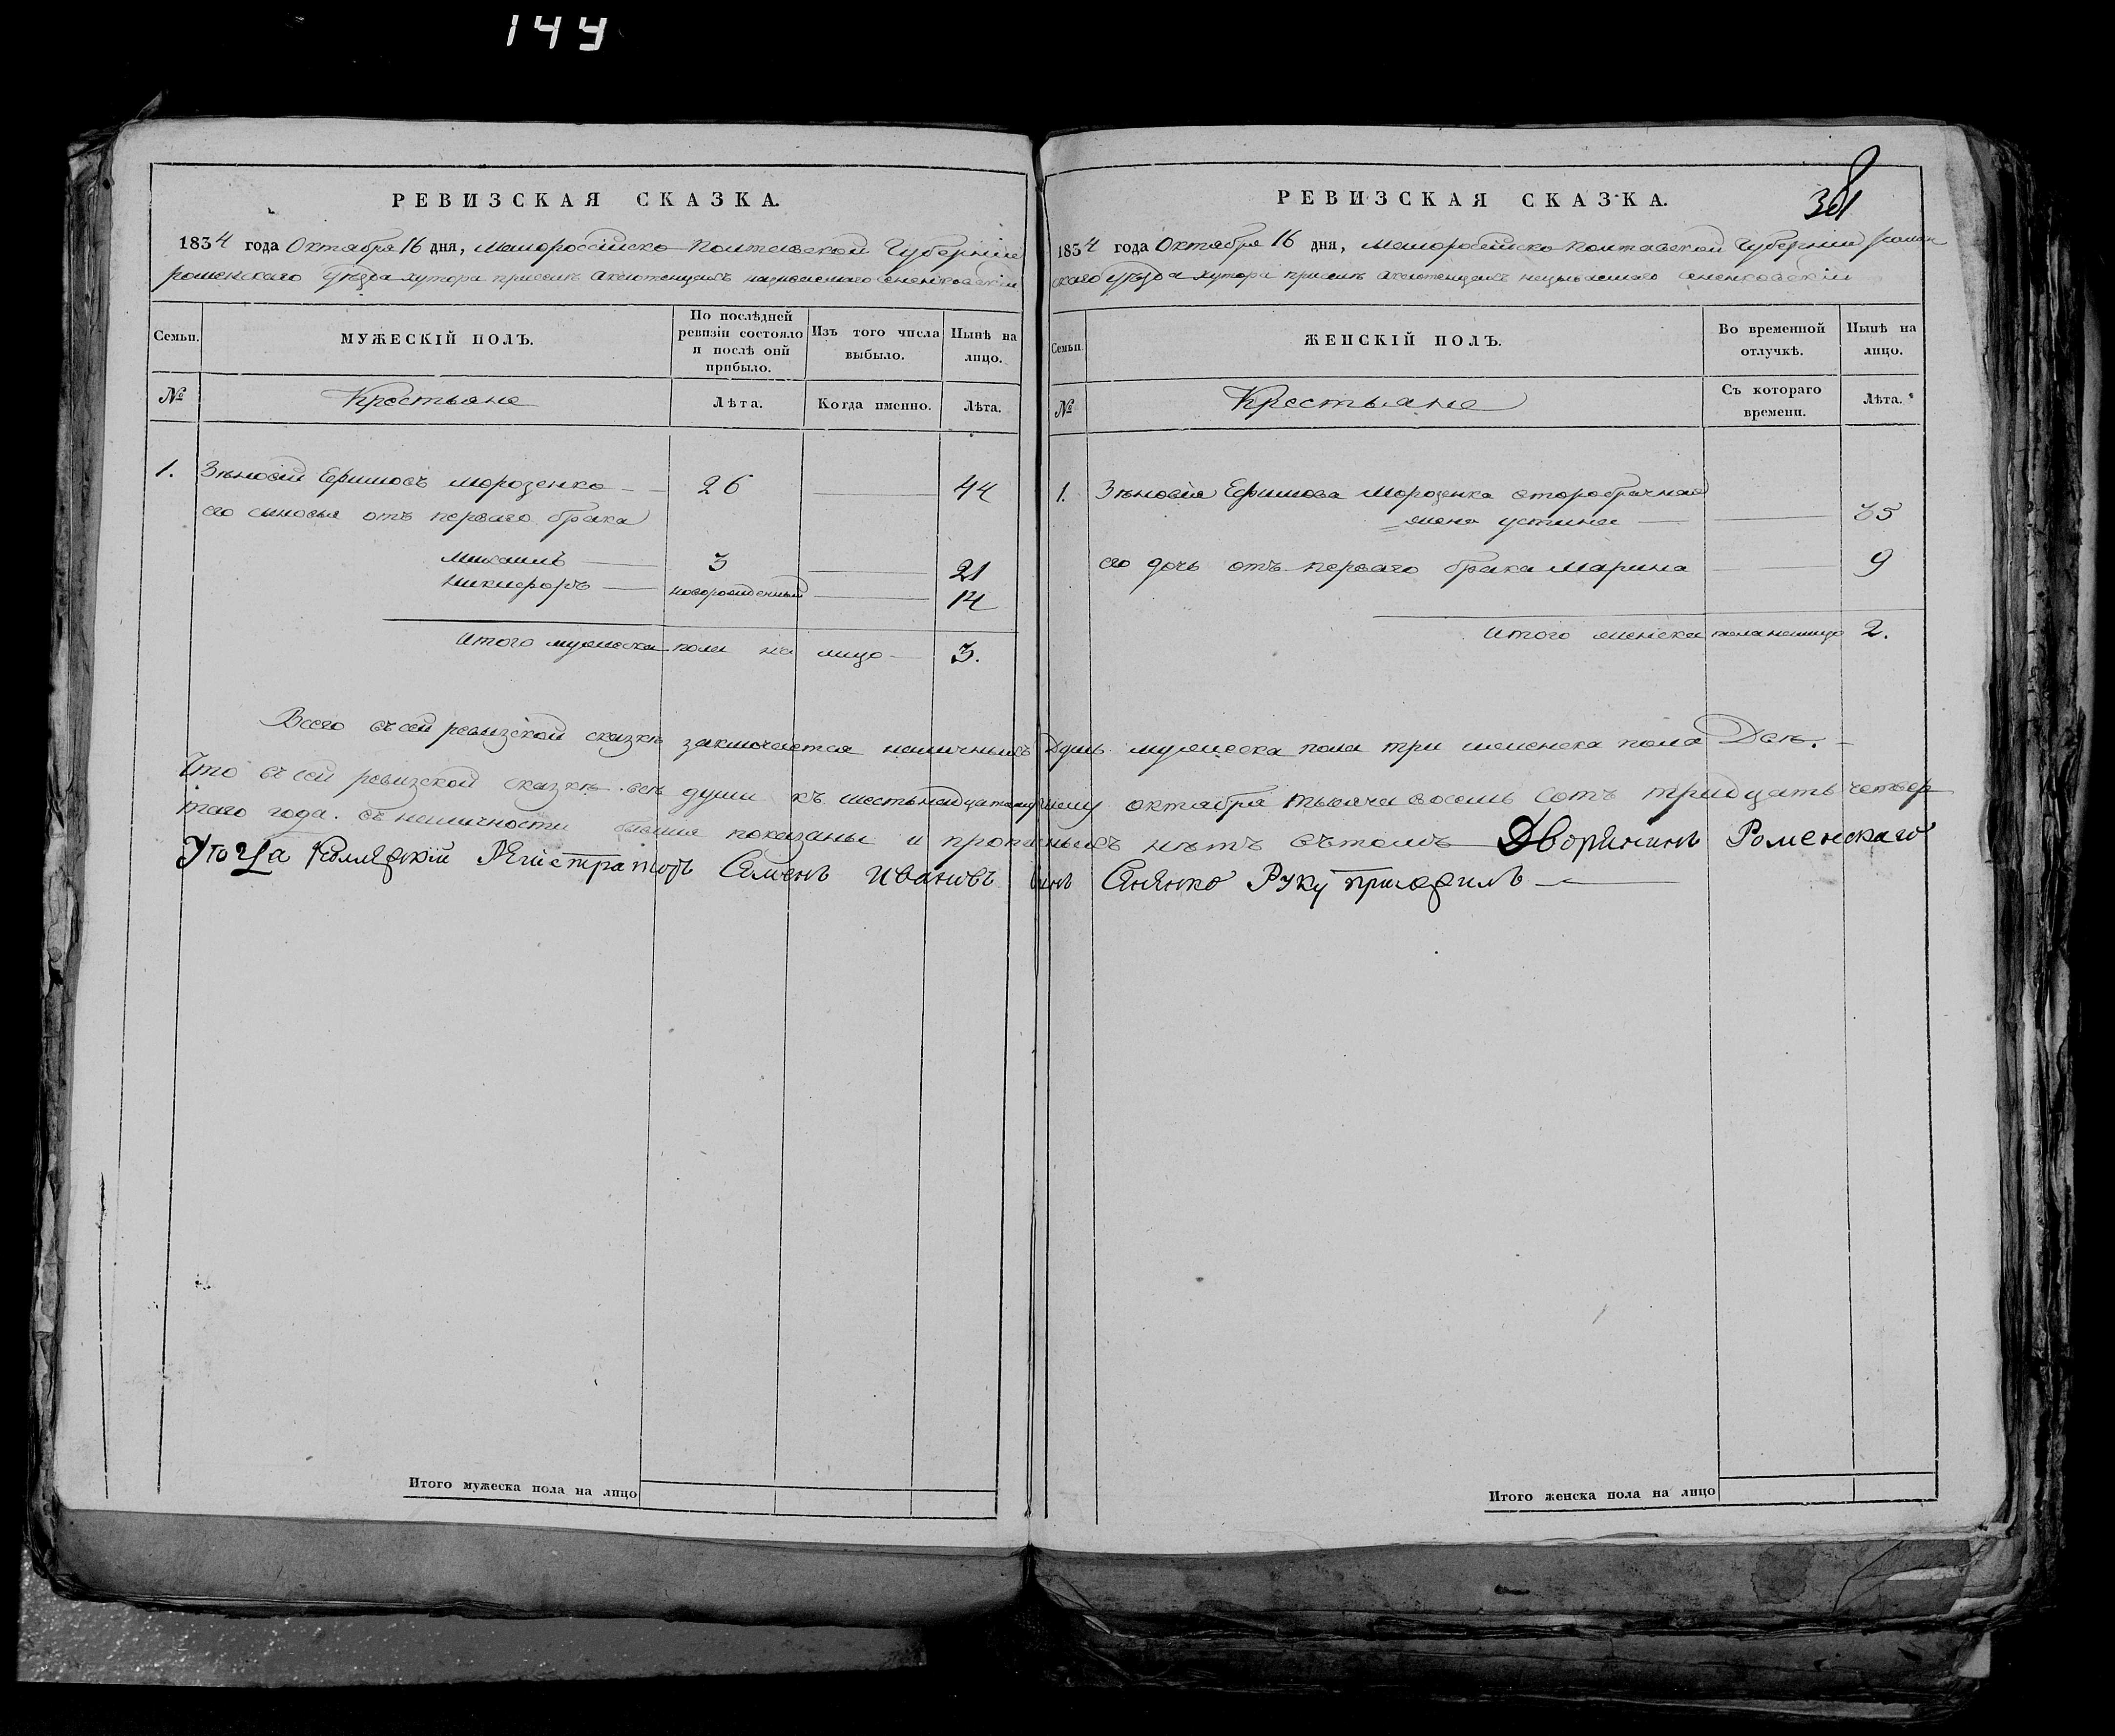 144
РЕВИЗСКАЯ СКАЗКА.
1834 года Октября 16 дня, Малороссійско Полтавской Губерніи
роменскаго Уѣзда хутора присемъ Аксютенцахъ называемаго Сененковскій
Семьи.
МУЖЕСКІЙ ПОЛЪ.
По послѣдней ревизіи состояло и послѣ оной прибыло.
Изъ того числа выбыло.
Нынѣ на лицо.
№
Крестьяне
Лѣта.
Когда именно.
Лѣта.
1. Зѣновій Ефимовъ Морозенко 26 44
его сыновья отъ перваго брака
Михаилъ 3 21
Никифоръ новорожденный 14
Итого мужеска пола на лицо 3.
Итого мужеска пола на лицо
РЕВИЗСКАЯ СКАЗКА.
381
1834 года Октября 16 дня, Малоросійско Полтавской Губерніи Ромен
скаго уѣзда хутора присемъ Аксютенцахъ называемаго Сененковскій
Семьи.
ЖЕНСКІЙ ПОЛЪ.
Во временной отлучкѣ.
Нынѣ на лицо.
№
Крестьяне
Съ котораго времени.
Лѣта.
1. Зѣновія Ефимова Морозенка второбрачная
жена устина 35
его дочь отъ перваго брака Марина 9
Итого женска пола налицо 2.
Всего въ сей ревизской сказкѣ заключается наличныхъ Душъ мужеска пола три женска пола Двѣ.
Что въ сей ревизской сказкѣ всѣ души къ шестьнадцатому октября тысяча восемь сотъ тридцать четвер
таго года. въ наличности бывшия показаны и прописныхъ нѣтъ вътомъ Дворянинъ Роменскаго
Уезда Колежскій Регистраторъ Семенъ Ивановъ сынъ Сененко Руку приложилъ
Итого женска пола на лицо